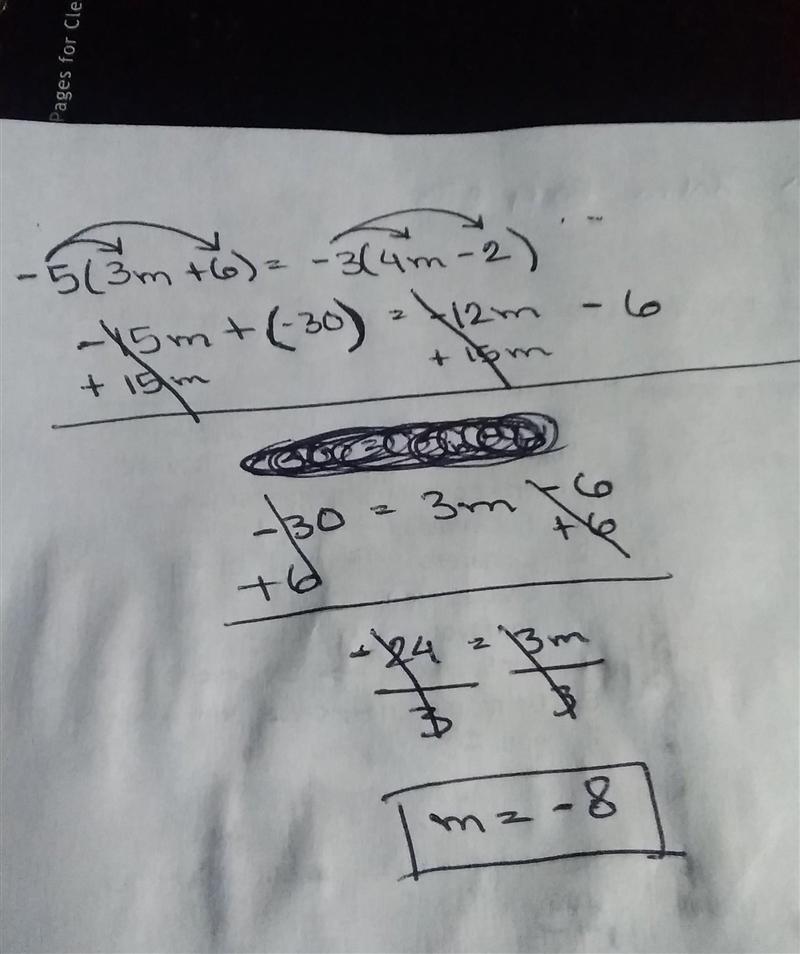 Pages for Cle
-5(3m+6) = -3(4m-2)
-15m + (-30) = -12m - 6
+ 15m + 15m
-30 = 3m - 6
+6 +6
-24 = 3m
3 3
m = -8